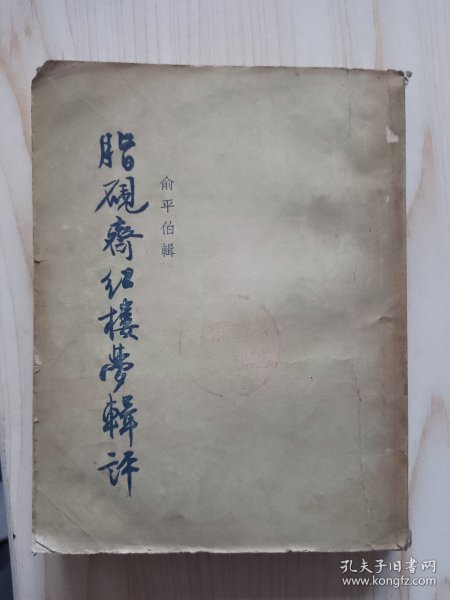 脂砚齋红樓夢輯評
俞平伯輯
孔夫子旧书网
www.kongfz.com